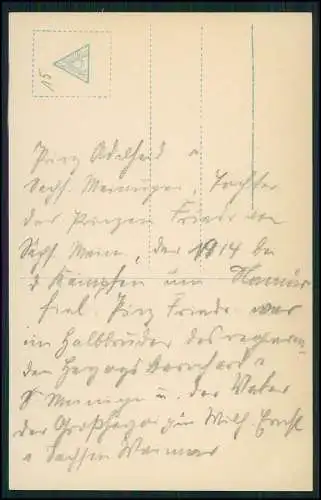 15
Prinz Adelheid v
Sachs. Meiningen, Tochter
des Prinzen Friedr von
Sachs Mein, der 1914 bei
d Kämpfen um Namur
fiel. Prinz Friedr. war
ein Halbbruder des regieren
den Herzogs Bernhard v
S Meiningen u. der Vater
der Großherzogin Wilh. Ernst
v Sachsen Weimar